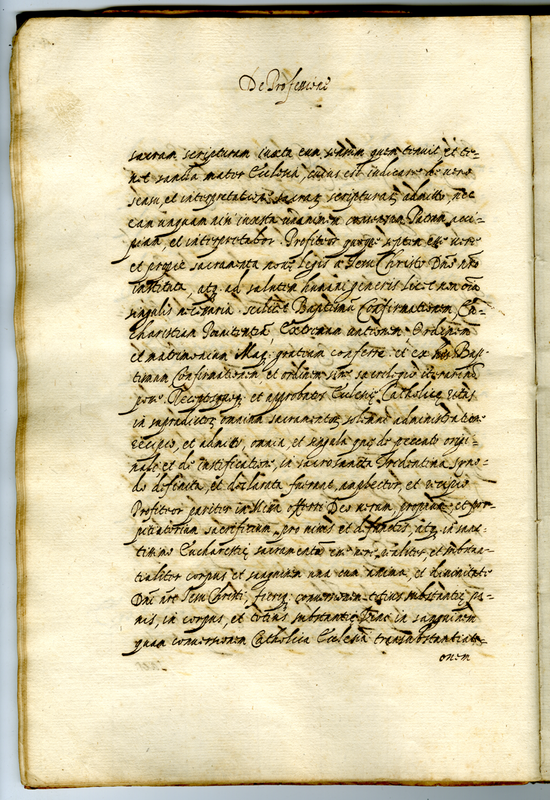 De Professione
sacram scripturam iuxta eum sensum quem tenuit et te-
net sancta mater Ecclesia, cuius est iudicare de vero
sensu, et interpretatione sacrarum scripturarum admitto, nec
eam unquam nisi iuxta unanimem consensum Patrum acci-
piam, et interpretabor. Profiteor quoque septem esse vere
et proprie sacramenta novae legis a Iesu Christo Dno nro
instituta, atque ad salutem humani generis licet non omnia
singulis necessaria, scilicet Baptismum Confirmationem, Eu-
charistiam Poenitentiam, Extremam unctionem Ordinem
et matrimonium illaque gratiam conferre: et ex his Bap-
tismum Confirmationem et ordinem sine sacrilegio iterari non
posse. Receptos quoque et approbatos Ecclesiae Catholicae ritus
in supradictorum omnium sacramentorum solemni administratione
recipio, et admitto, omnia, et singula quae de peccato origi-
nali, et de iustificatione, in sacrosancta Tridentina Syno-
do definita, et declarata fuerunt, amplector, et recipio
Profiteor pariter in Missa offerri Deo verum, proprium et pro-
pitiatorium sacrificium pro vivis et defunctis, atque in sanc-
tissimo Eucharistiae sacramento esse vere realiter et substan-
tialiter corpus et sanguinem una cum anima, et divinitate
Dni nri Iesu Christi, fierique conversionem totius substantiae pa-
nis, in corpus, et totius substantiae vini in sanguinem
quam conversionem Catholica Ecclesia transubstantiati-
onem